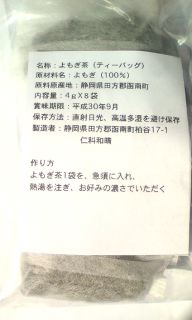 名称：よもぎ茶（ティーバッグ）
原材料名：よもぎ（100％）
原料原産地：静岡県田方郡函南町
内容量：4ｇＸ８袋
賞味期限：平成30年9月
保存方法：直射日光、高温多湿を避け保存
製造者：静岡県田方郡函南町柏谷17-1
仁科和晴
作り方
よもぎ茶1袋を、急須に入れ、
熱湯を注ぎ、お好みの濃さでいただく